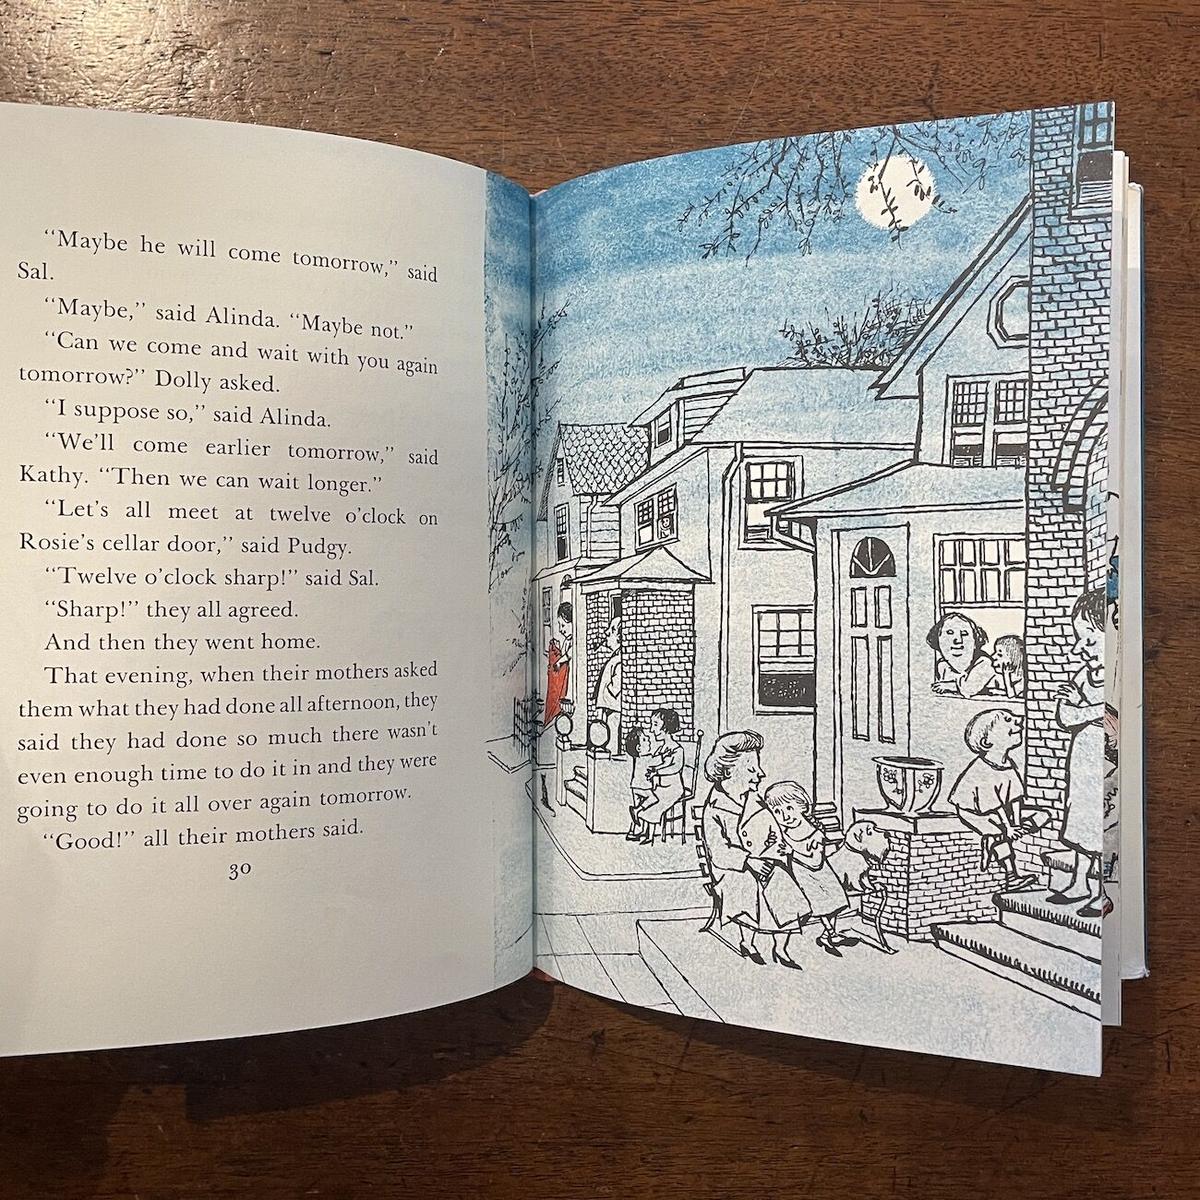 “Maybe he will come tomorrow,” said
Sal.
“Maybe,” said Alinda. “Maybe not.”
“Can we come and wait with you again
tomorrow?” Dolly asked.
“I suppose so,” said Alinda.
“We’ll come earlier tomorrow,” said
Kathy. “Then we can wait longer.”
“Let’s all meet at twelve o’clock on
Rosie’s cellar door,” said Pudgy.
“Twelve o’clock sharp!” said Sal.
“Sharp!” they all agreed.
And then they went home.
That evening, when their mothers asked
them what they had done all afternoon, they
said they had done so much there wasn’t
even enough time to do it in and they were
going to do it all over again tomorrow.
“Good!” all their mothers said.
30